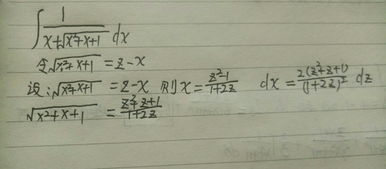 ∫ 1/(x+√(x²+x+1)) dx
令√(x²+x+1) = z-x
设:√(x²+x+1) = z-x 则 x = (z²-1)/(1+2z) dx = 2(z²+z+1)/(1+2z)² dz
√(x²+x+1) = (z²+z+1)/(1+2z)